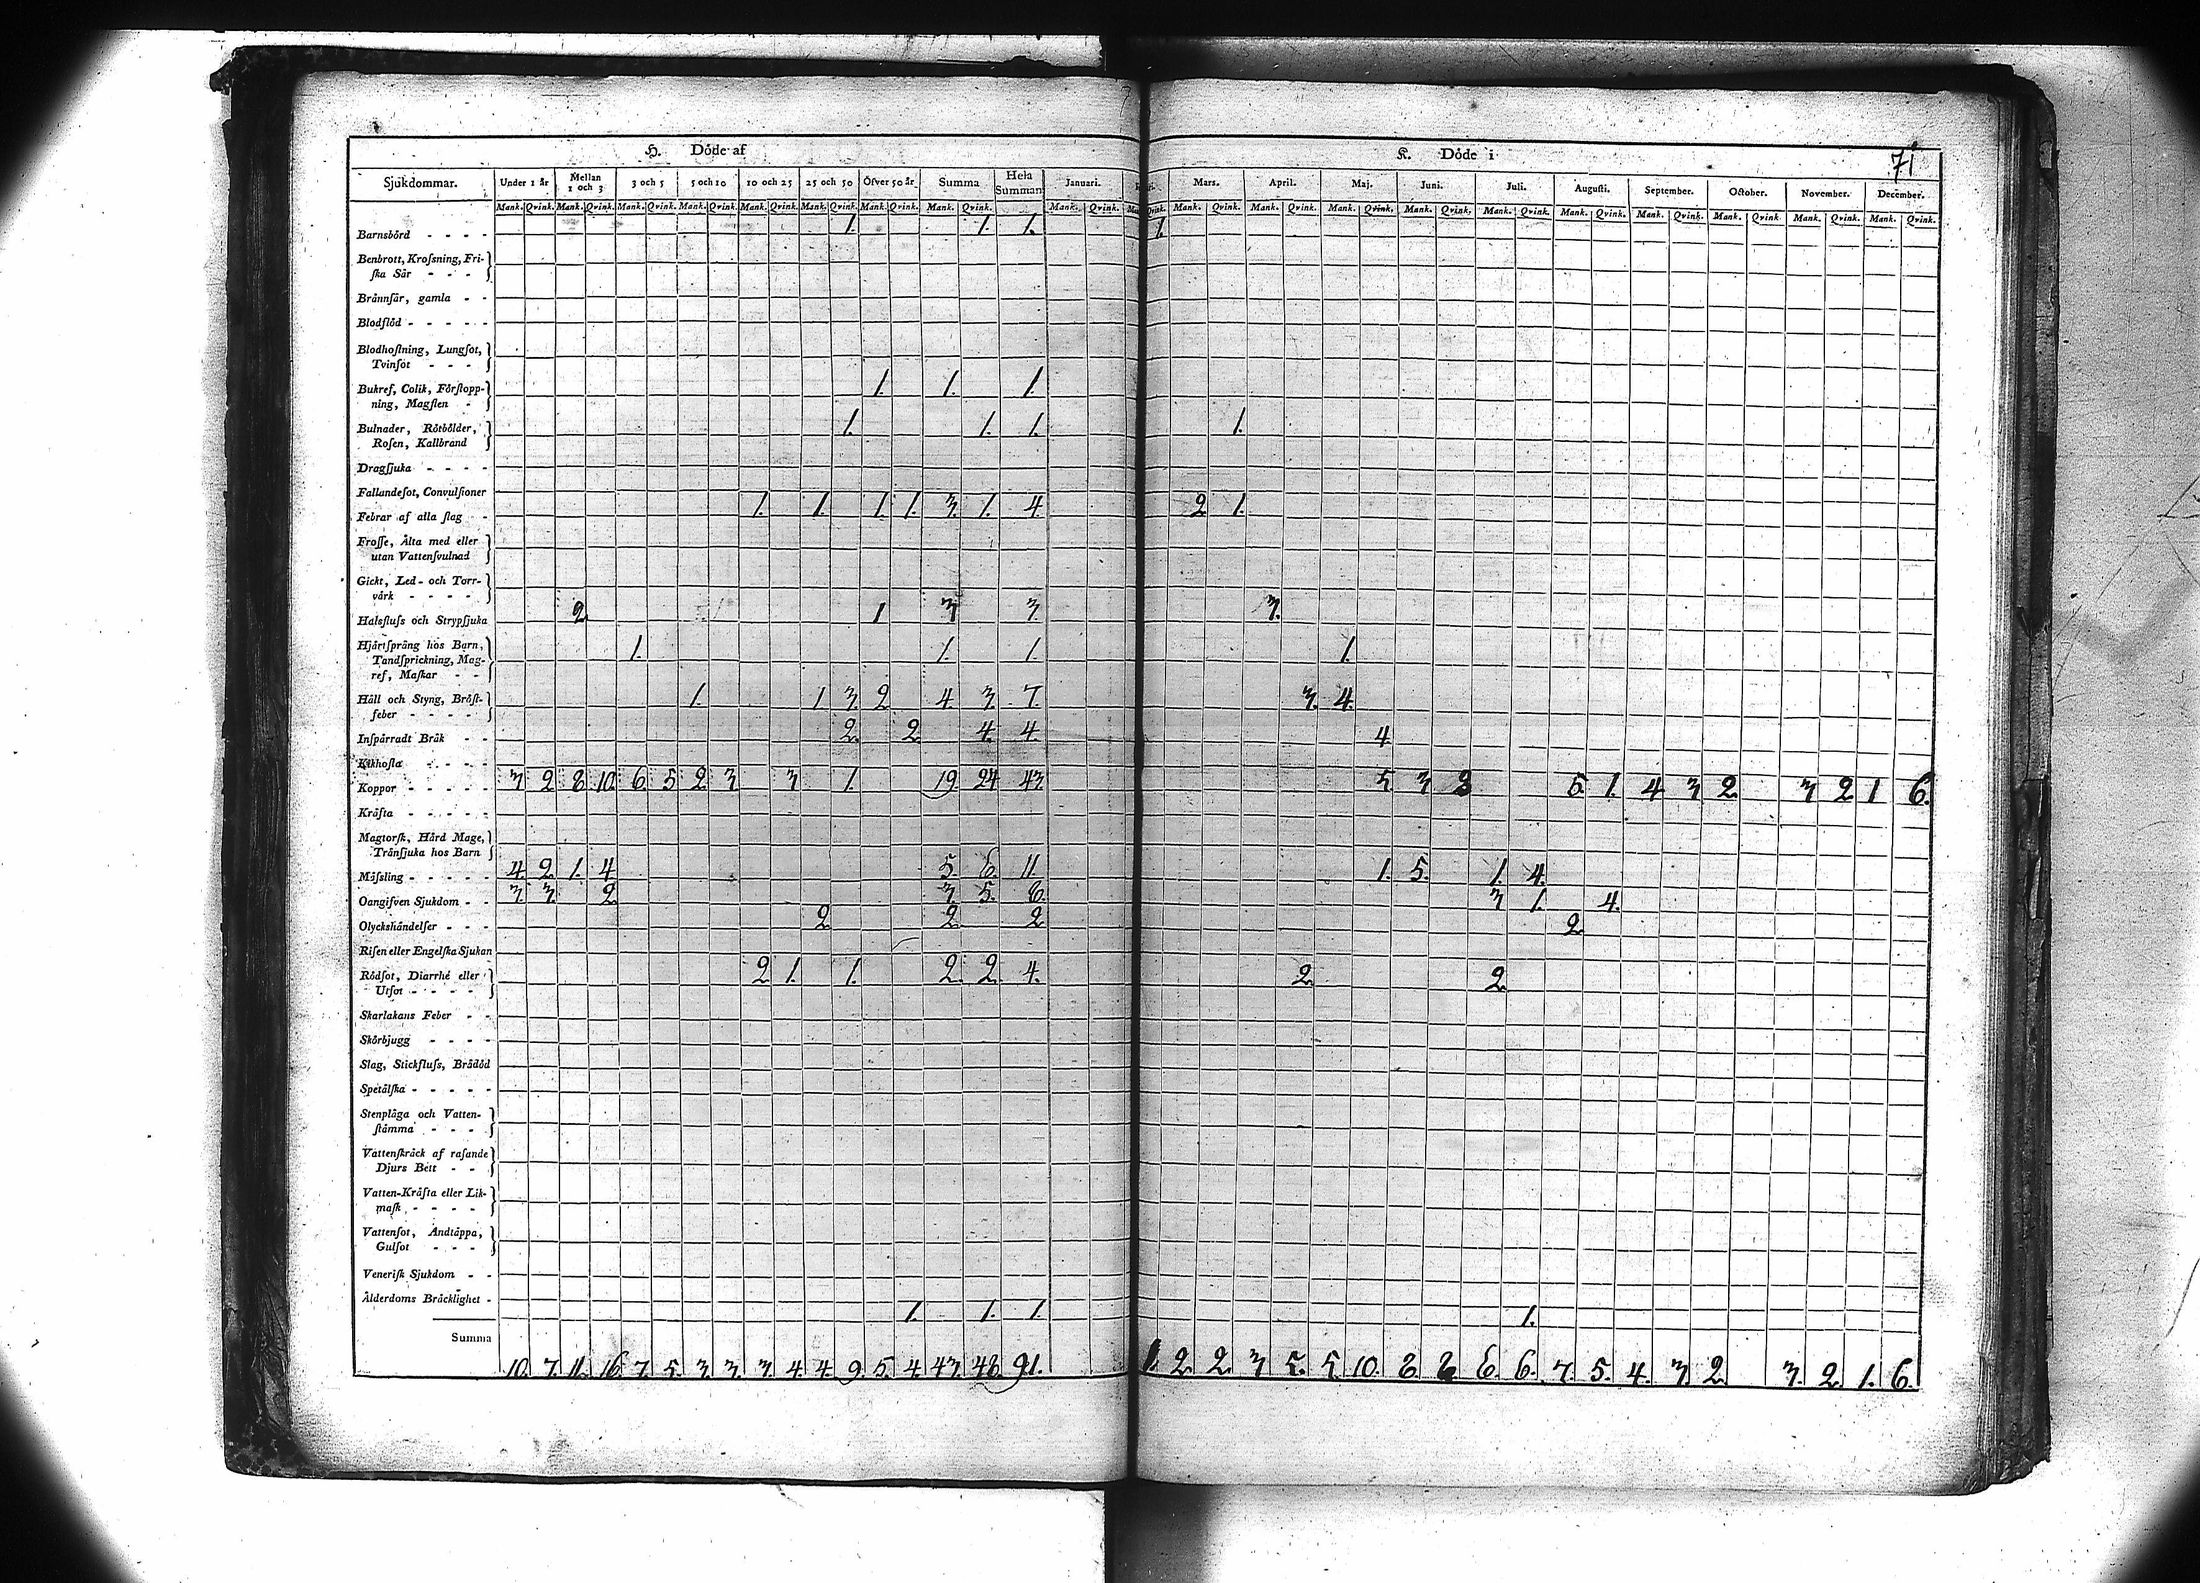 71
H. Döde af
K. Döde i
Sjukdommar. Under 1 år Mellan 1 och 3 3 och 5 5 och 10 10 och 25 25 och 50 Öfver 50 år Summa Hela Summan Januari. Mars. April. Maj. Juni. Juli. Augusti. September. October. November. December.
Mank. Qvink. Mank. Qvink. Mank. Qvink. Mank. Qvink. Mank. Qvink. Mank. Qvink. Mank. Qvink. Mank. Qvink. Mank. Qvink. Qvink. Mank. Qvink. Mank. Qvink. Mank. Qvink. Mank. Qvink. Mank. Qvink. Mank. Qvink. Mank. Qvink. Mank. Qvink. Mank. Qvink. Mank. Qvink.
Barnsbörd - - - - 1. 1. 1. 1.
Benbrott, Krosning, Fri-
ska Sår - - -
Brännsår, gamla - -
Blodflöd - - - - -
Blodhostning, Lungsot,
Tvinsot - - -
Bukref, Colik, Förstopp- 1. 1. 1.
ning, Magsten -
Bulnader, Rötbölder, 1. 1. 1. 1.
Rosen, Kallbrand
Dragsjuka - - - -
Fallandesot, Convulsioner
Febrar af alla slag - 1. 1. 1. 1. 3. 1. 4. 2 1.
Frosse, Älta med eller
utan Vattensvulnad
Gickt, Led- och Torr-
värk - - - -
Halsfluss och Strypsjuka 2 1 3 3. 3.
Hjärtsprång hos Barn, 1. 1. 1. 1.
Tandsprickning, Mag-
ref, Maskar - -
Håll och Styng, Bröst- 1. 1 3. 2 4 3. 7. 3. 4.
feber - - - -
Inspärradt Bråk - - 2. 2. 4. 4 4
Kikhosta - - - -
Koppor - - - - - 3 2 8 10. 6 5 2 3 3 1. 19. 24 43. 5 3 3 5. 1. 4 3 2 3 2 1 6.
Kräfta - - - - -
Magtorsk, Hård Mage,
Trånsjuka hos Barn
Mässling - - - - - 4. 2 1. 4 5. 6. 11. 1. 5. 1. 4.
Oangifven Sjukdom - - 3. 3. 2 3. 5. 8. 3 1. 4.
Olyckshändelser - - - 2 2 2 2
Risen eller Engelska Sjukan
Rödsot, Diarrhé eller 2 1. 1. 2. 2 4. 2 2
Utsot - - - -
Skarlakans Feber - -
Skörbjugg - - - -
Slag, Stickfluss, Brådöd
Spetälska - - - - -
Stenplåga och Vatten-
stämma - - -
Vattenskräck af rasande
Djurs Bett - -
Vatten-Kräfta eller Lik-
mask - - - -
Vattensot, Andtäppa,
Gulsot - - -
Venerisk Sjukdom - -
Ålderdoms Bräcklighet - 1. 1. 1. 1.
Summa 10. 7. 11. 16 7. 5. 3 3. 3 4 4. 9. 5. 4. 43. 48. 91. 1. 2 2. 3 5. 5. 10. 8. 6. 6. 7. 5. 4. 3 2. 3. 2. 1. 6.